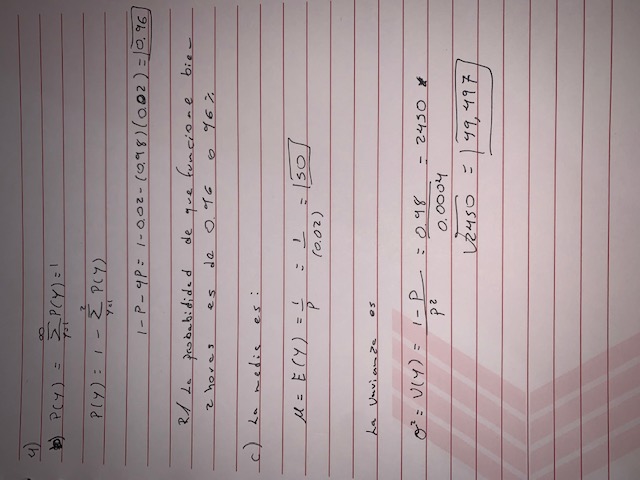 4)
b) P(Y) = ∞ Σ y=1 P(Y) = 1
P(Y) = 1 - 2 Σ y=1 P(Y)
1 - P - qP = 1 - 0.02 - (0.98)(0.02) = 0.96
R/ La probabididad de que funcione bie-
2 horas es de 0.96 o 96%
c) La media es:
μ = E(Y) = 1/P = 1/(0.02) = 50
La varianza es
σ² = V(Y) = 1-P/P² = 0.98/0.0004 = 2450
√2450 = 49,497